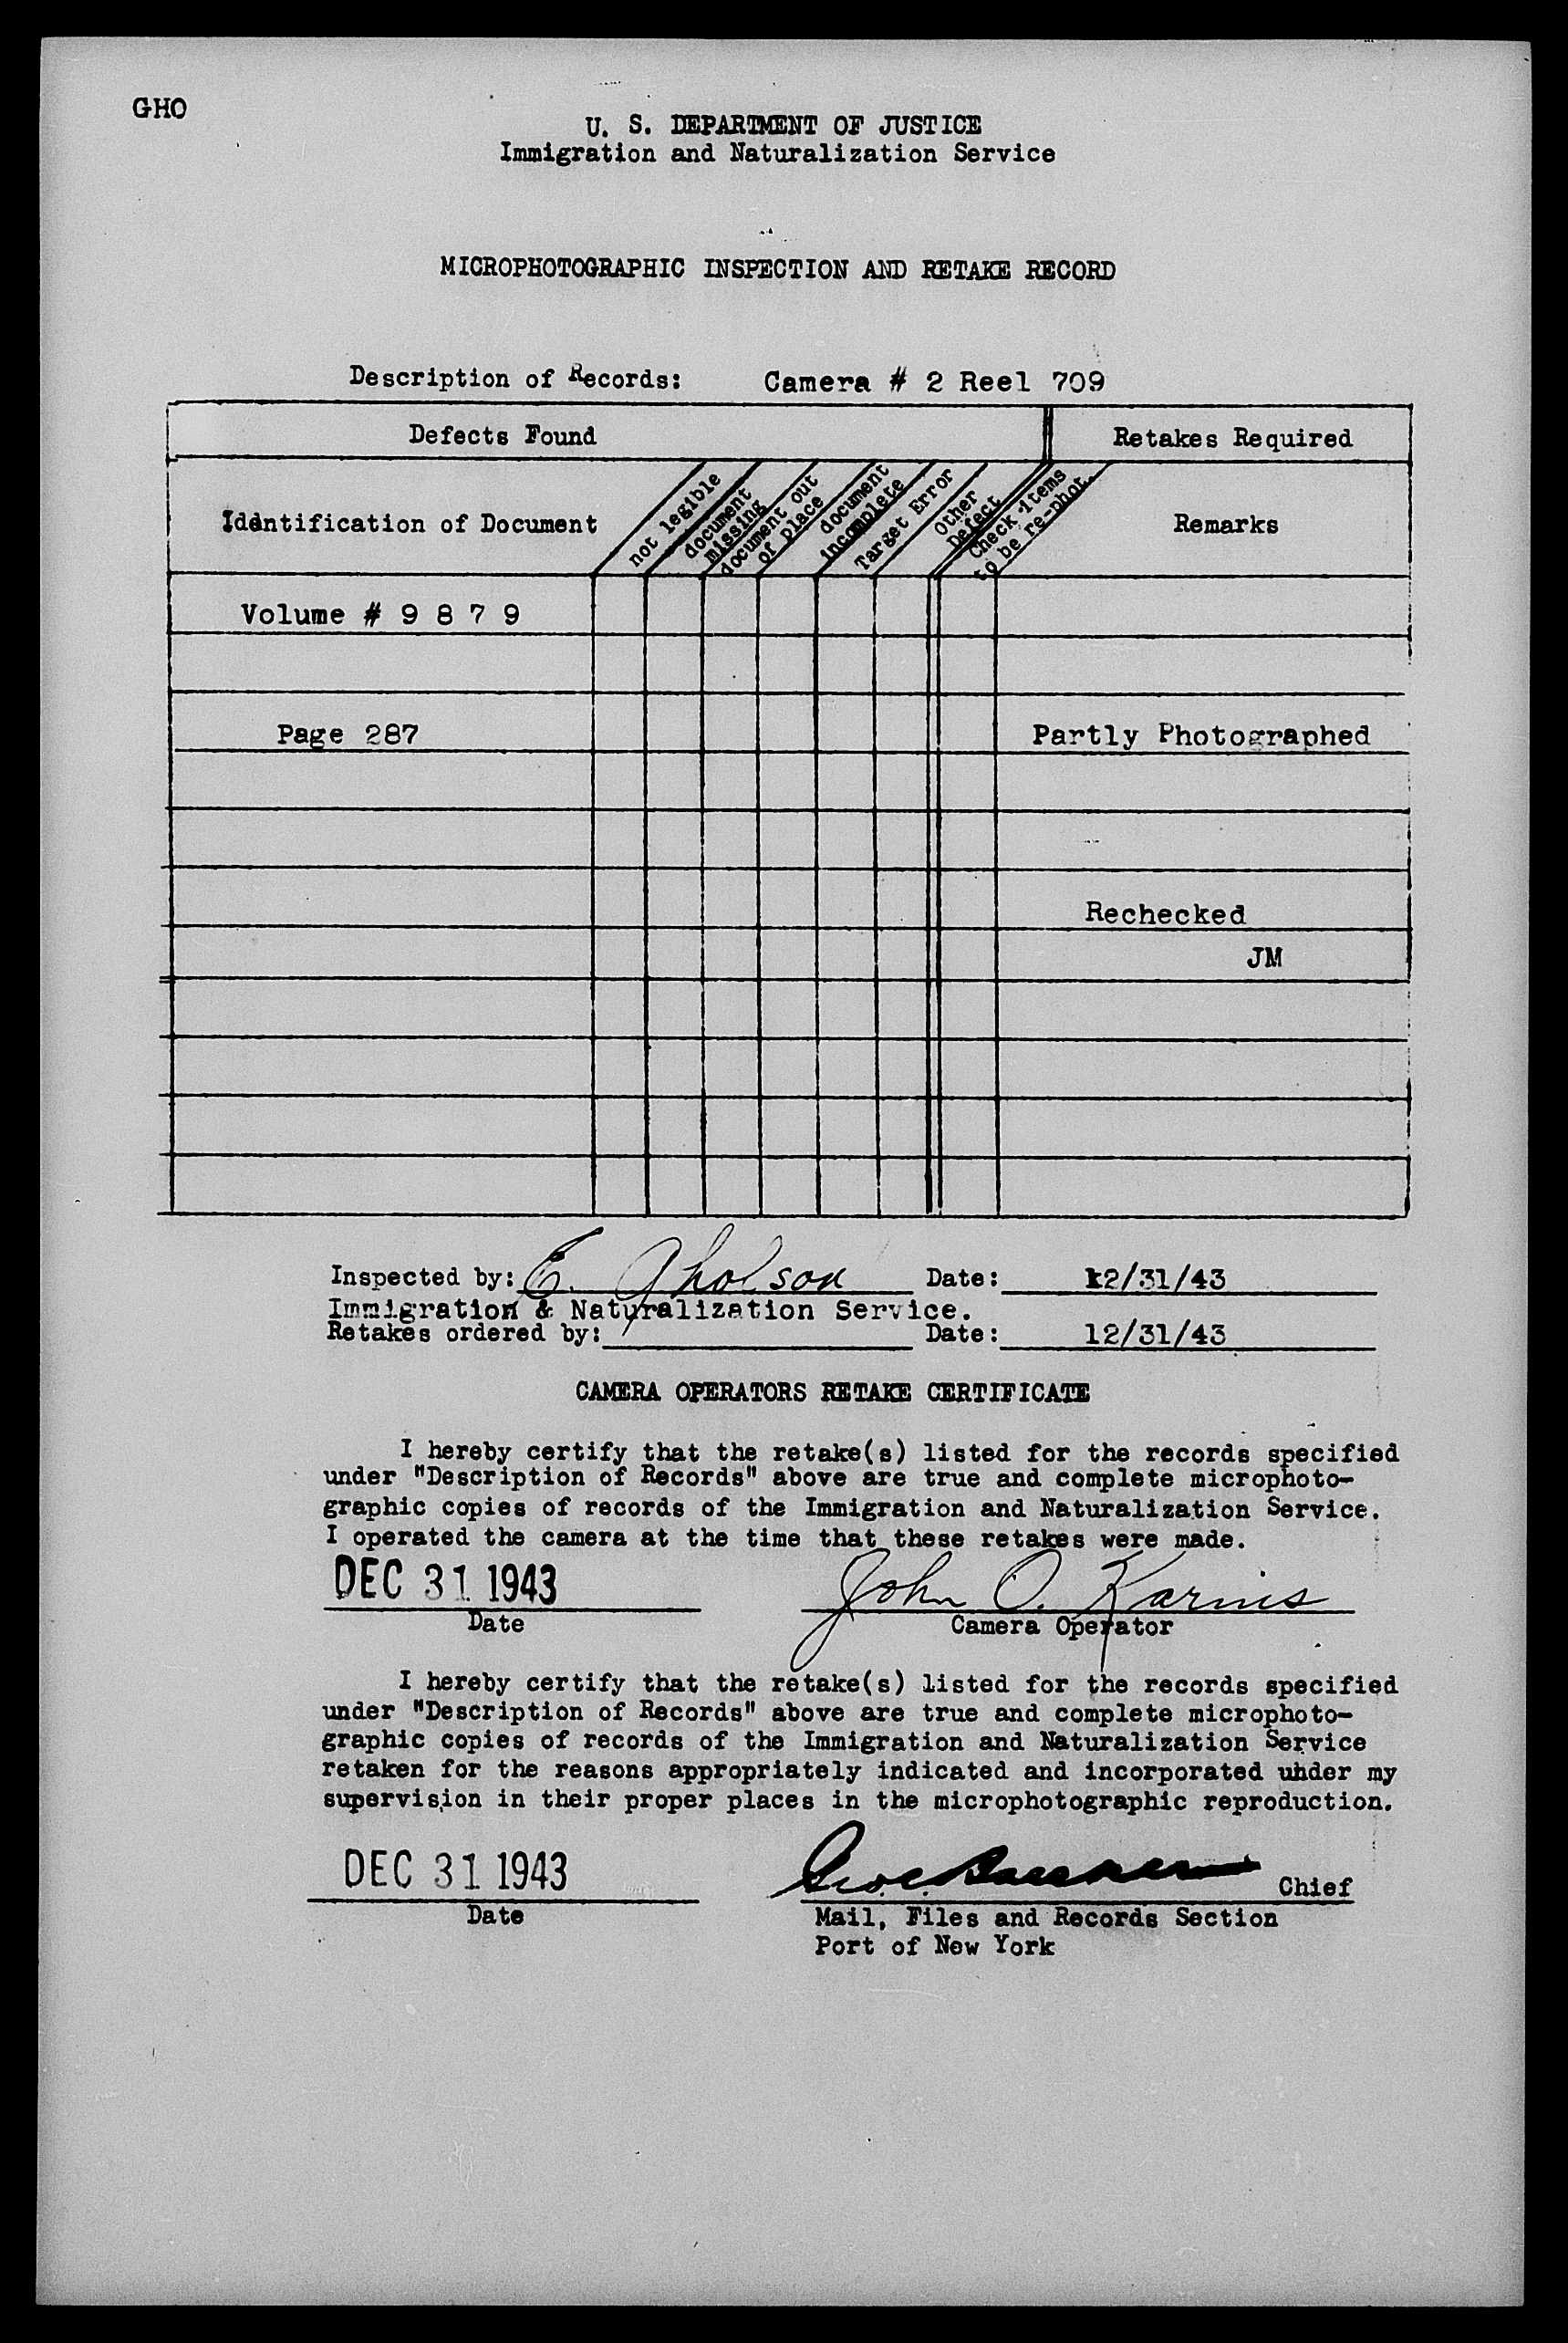 GHO
U. S. DEPARTMENT OF JUSTICE
Immigration and Naturalization Service
MICROPHOTOGRAPHIC INSPECTION AND RETAKE RECORD
Description of Records: Camera # 2 Reel 709
Defects Found Retakes Required
Identification of Document
not legible
document missing
document out of place
document incomplete
Target Error
Other Defect
Check Items to be re-phot.
Remarks
Volume # 9 8 7 9
Page 287 Partly Photographed
Rechecked
JM
Inspected by: E. Gholson Date: 12/31/43
Immigration & Naturalization Service.
Retakes ordered by: Date: 12/31/43
CAMERA OPERATORS RETAKE CERTIFICATE
I hereby certify that the retake(s) listed for the records specified
under "Description of Records" above are true and complete microphoto-
graphic copies of records of the Immigration and Naturalization Service.
I operated the camera at the time that these retakes were made.
DEC 31 1943 John O. Karins
Date Camera Operator
I hereby certify that the retake(s) listed for the records specified
under "Description of Records" above are true and complete microphoto-
graphic copies of records of the Immigration and Naturalization Service
retaken for the reasons appropriately indicated and incorporated under my
supervision in their proper places in the microphotographic reproduction.
DEC 31 1943 Chief
Date Mail, Files and Records Section
Port of New York